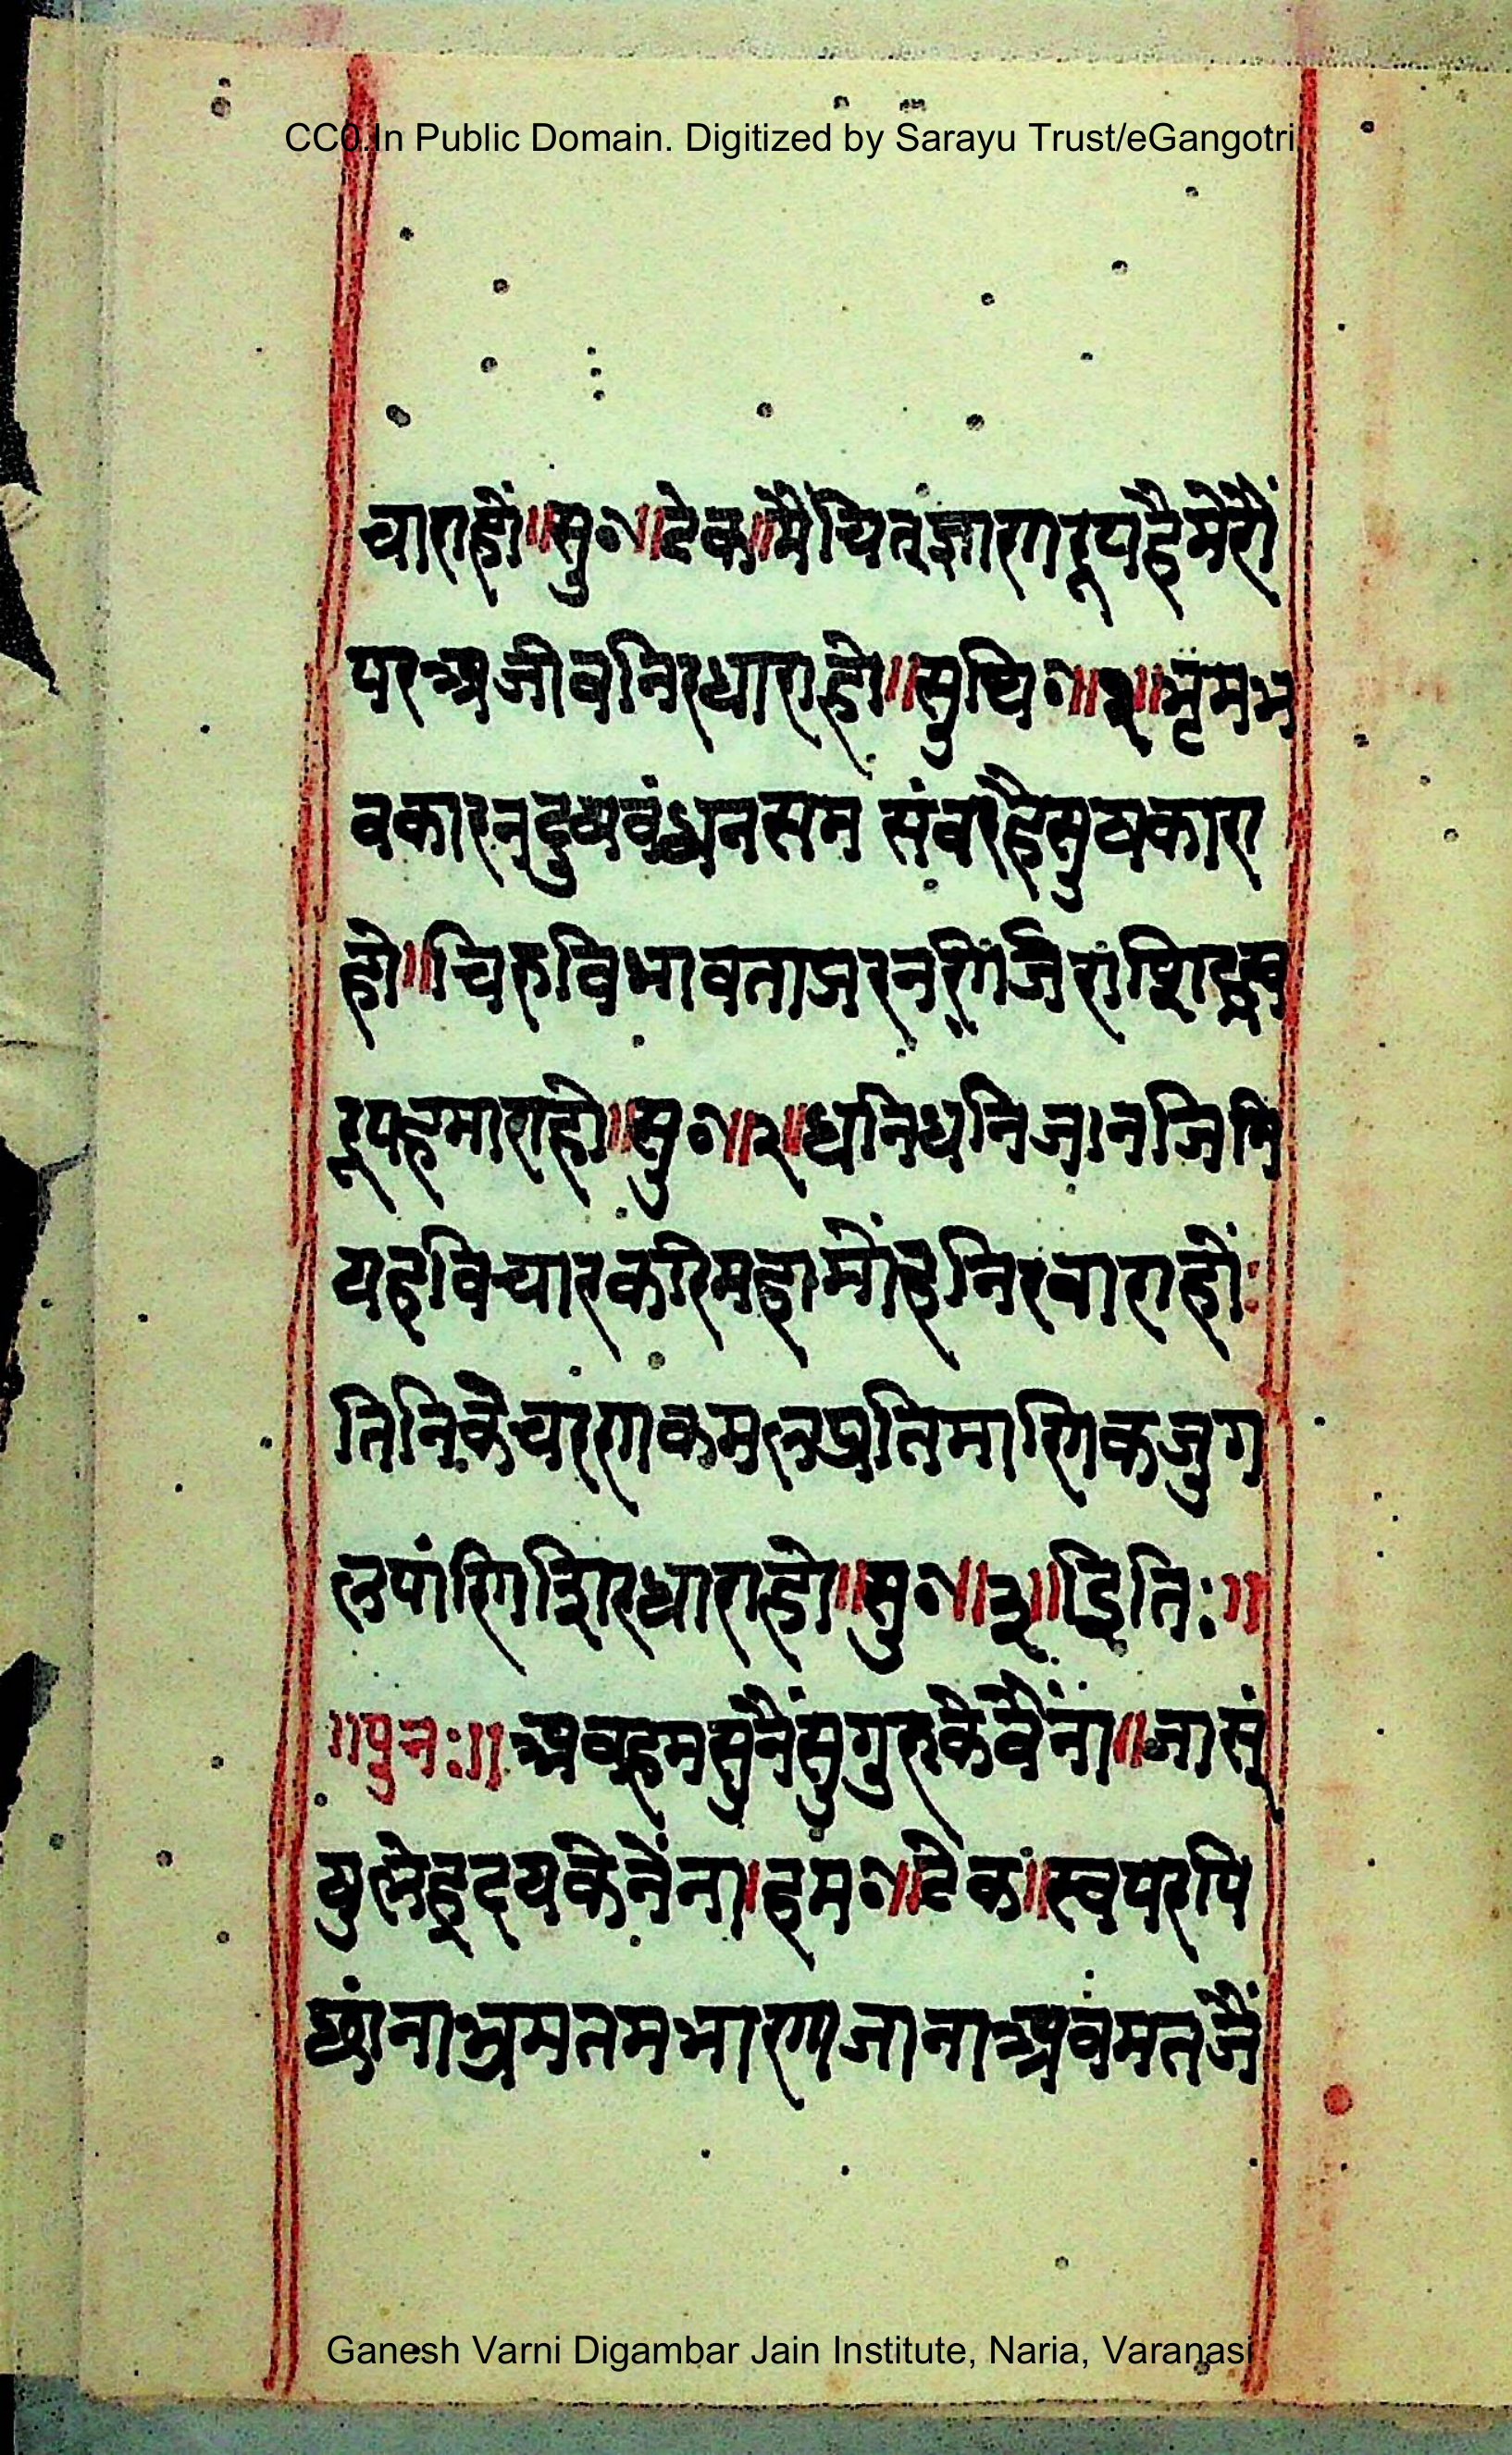 CC0.In Public Domain. Digitized by Sarayu Trust/eGangotri
चाराहों॥सु०॥टेक॥मैंचितज्ञारणरूपहैमेरौं
परअजीवनिरधाराहो॥सुधि०॥१॥भृमभ
वकारनदुषबंधनसम संवरहैसुषकारा
हो॥चिरुविभावताझरन
रूपहमाराहो॥सु०॥२॥धनिधनिजानजिनि
यहविचारकरिमहामोंहनिरवाराहों:
तिनिकेचरंणकमलप्रतिमाणिकजुग
लपांणिशिरधाराहो॥सु०॥३॥इिति:॥
॥पुन:॥ अबहमसुनैंसुगुरुकेवैंना॥जासं
युलेहृदयकेनेंना।हम०॥टेक।स्वपरपि
छांनाभ्रमतमभारणजानाअवमतजैं
Ganesh Varni Digambar Jain Institute, Naria, Varanasi